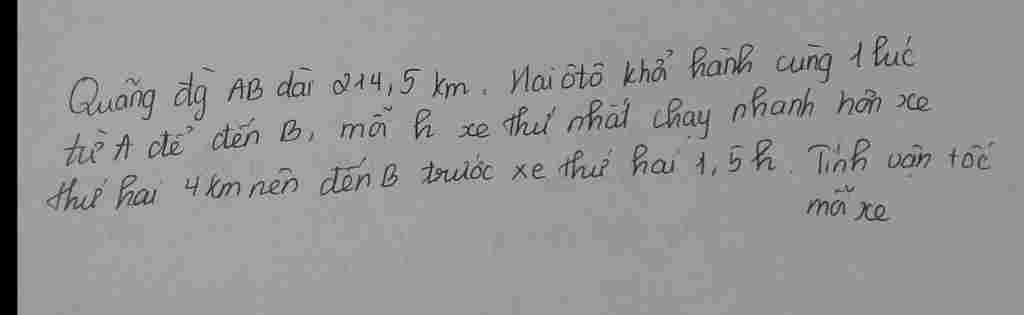 Quãng đg AB dài 214,5 km. Hai ôtô khở hành cùng 1 lúc
từ A để đến B, mỗi h xe thứ nhất chạy nhanh hơn xe
thứ hai 4 km nên đến B trước xe thứ hai 1,5 h. Tính vận tốc
mỗi xe